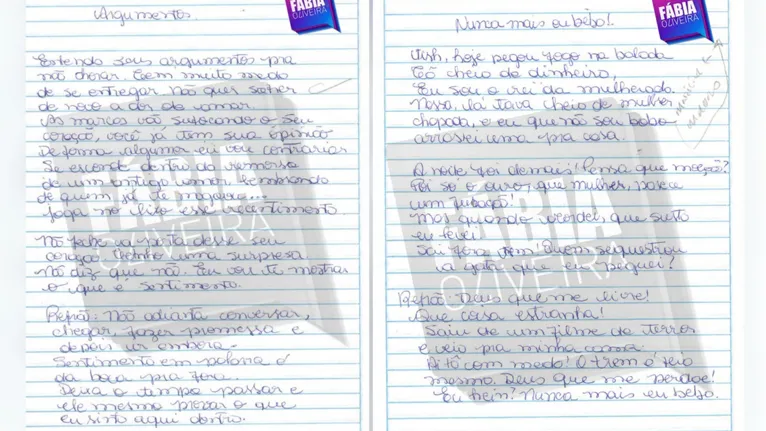 Argumentos.
FÁBIA
OLIVEIRA
Entendo seus argumentos pra
não chorar. Tem muito medo
de se entregar. Não quer sofrer
de novo a dor de amar.
As marcas vão sufocando o seu
coração, você já tem sua opinião
De forma alguma eu vou contrariar
Se esconde dentro da
de um antigo amor. Lembrando
de quem já te magoou...
Joga no lixo esse ressentimento.
Não feche a porta desse seu
coração. Tenho uma surpresa.
Não diz que não. Eu vou te mostrar
o que é sentimento.
Refrão: Não adianta conversar,
chegar, fazer promessa e
depois ir embora.
Sentimento em palavra é
da boca pra fora.
Deixa o tempo passar e
ele mesmo provar o que
eu sinto aqui dentro.
Nunca mais eu bebo!
FÁBIA
OLIVEIRA
Vish, hoje pegou fogo na balada
Tô cheio de dinheiro,
Eu sou o rei da mulherada.
Nossa, lá tava cheio de mulher
chapada, e eu que não sou bobo
arrastei uma pra casa.
A noite foi demais! Pensa que moção?
Foi só o ouro, que mulher, parecia
um furacão!
Mas quando acordei, que susto
eu levei.
Sai fora trem! Quem sequestrou
a gata que eu peguei?
Refrão: Deus que me livre!
Que coisa estranha!
Saiu de um filme de terror
e veio pra minha cama.
Aí tô com medo! O trem é feio
mesmo. Deus que me perdoe!
Eu hein? Nunca mais eu bebo.
FÁBIA
OLIVEIRA
FÁBIA
OLIVEIRA